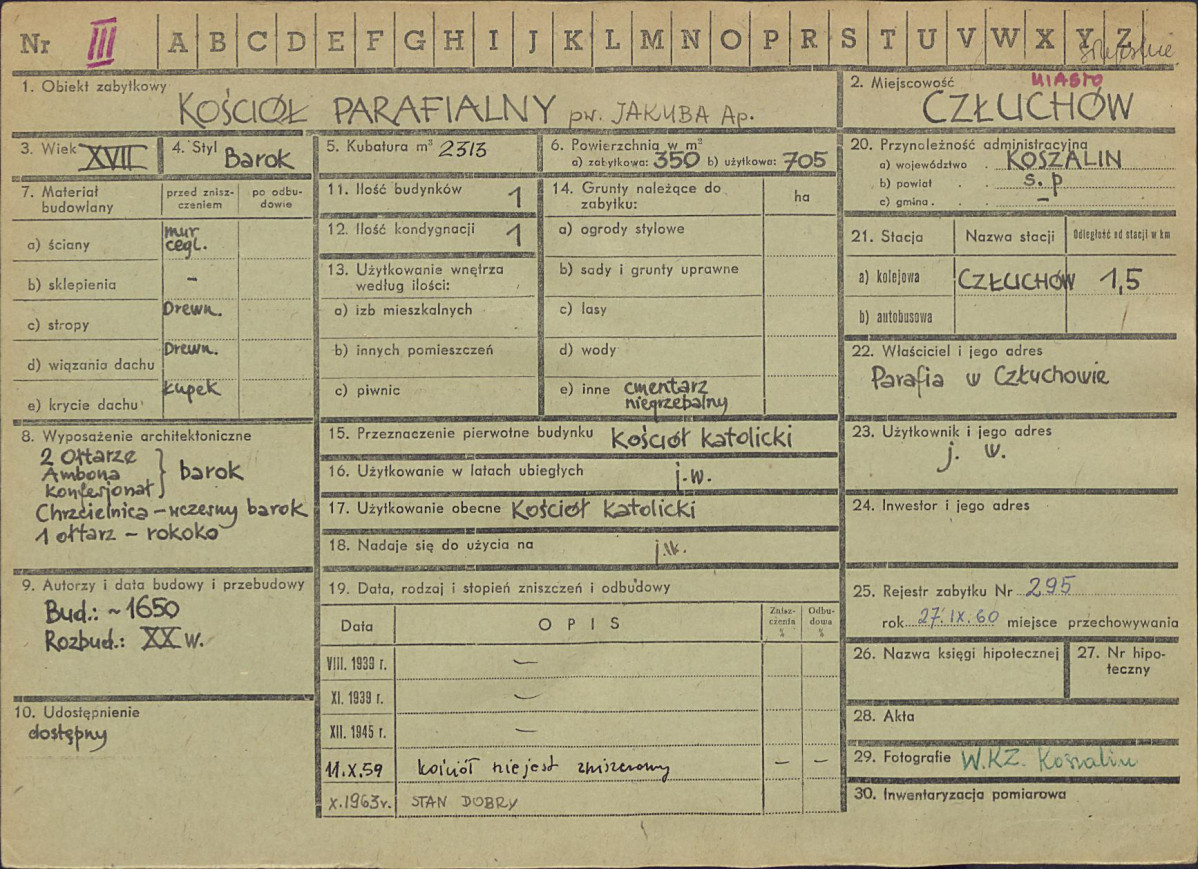 Nr III A B C D E F G H I J K L M N O P R S T U V W X Y Z
1. Obiekt zabytkowy
KOŚCIÓŁ PARAFIALNY pw. JAKUBA Ap.
2. Miejscowość
MIASTO
CZŁUCHÓW
3. Wiek XVII
4. Styl Barok
5. Kubatura m³ 2313
6. Powierzchnia w m²
a) zabytkowa: 350 b) użytkowa: 705
7. Materiał budowlany
przed znisz-
czeniem
po odbu-
dowie
a) ściany mur cegl.
b) sklepienia –
c) stropy Drewn.
d) wiązania dachu Drewn.
e) krycie dachu Łupek
8. Wyposażenie architektoniczne
2 Ołtarze
Ambona
Konfesjonał } barok
Chrzcielnica – wczesny barok
1 ołtarz – rokoko
9. Autorzy i data budowy i przebudowy
Bud.: ~1650
Rozbud.: XX w.
10. Udostępnienie
dostępny
11. Ilość budynków 1
12. Ilość kondygnacji 1
13. Użytkowanie wnętrza
według ilości:
a) izb mieszkalnych
b) innych pomieszczeń
c) piwnic
14. Grunty należące do
zabytku:
ha
a) ogrody stylowe
b) sady i grunty uprawne
c) lasy
d) wody
e) inne cmentarz
niegrzebalny
15. Przeznaczenie pierwotne budynku Kościół katolicki
16. Użytkowanie w latach ubiegłych j.w.
17. Użytkowanie obecne Kościół katolicki
18. Nadaje się do użycia na j.w.
19. Data, rodzaj i stopień zniszczeń i odbudowy
Data
OPIS
Znisz-
czenia
%
Odbu-
dowa
%
VIII. 1939 r. –
XI. 1939 r. –
XII. 1945 r. –
11.X.59 kościół nie jest zniszczony – –
X.1963r. STAN DOBRY
20. Przynależność administracyjna
a) województwo . KOSZALIN
b) powiat . . s. p
c) gmina . . . –
21. Stacja
Nazwa stacji
Odległość od stacji w km
a) kolejowa CZŁUCHÓW 1,5
b) autobusowa
22. Właściciel i jego adres
Parafia w Człuchowie
23. Użytkownik i jego adres
j. w.
24. Inwestor i jego adres
25. Rejestr zabytku Nr 295
rok 27.IX.60 miejsce przechowywania
26. Nazwa księgi hipotecznej
27. Nr hipo-
teczny
28. Akta
29. Fotografie W.KZ. Koszalin
30. Inwentaryzacja pomiarowa